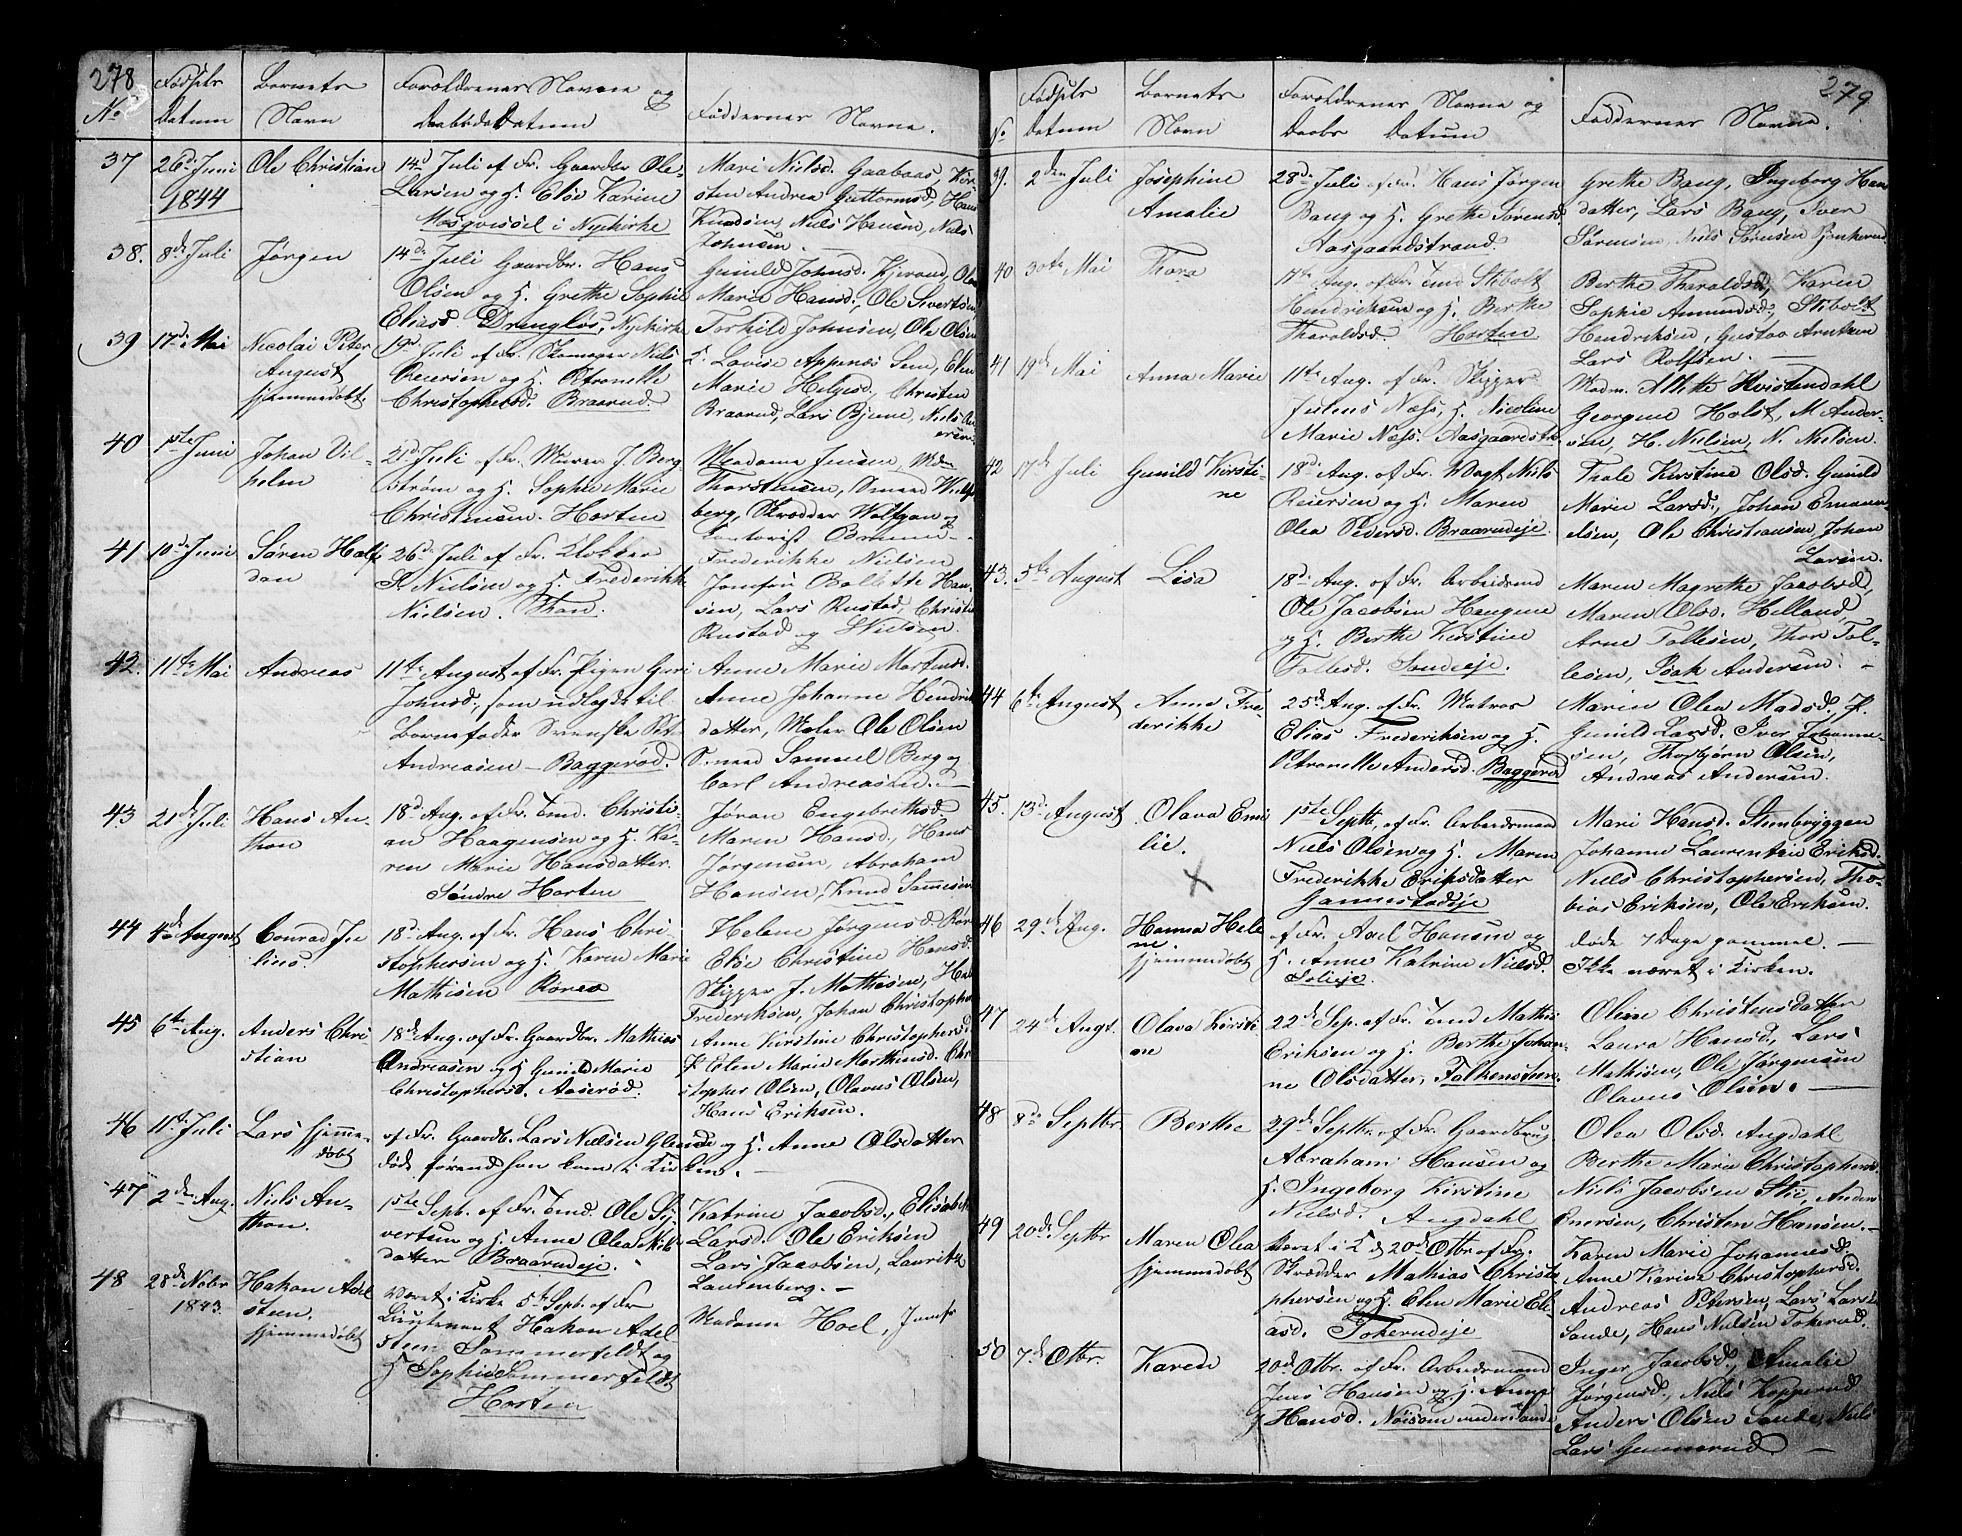 278
No
Fødsels
Datum
Barnets
Navn
Forældrenes Navne og
Daabs Datum
Faddernes Navne.
37
26d Juni
1844
Ole Christian
14d Juli af Fr. Gaardbr Ole
Larsen og H. Elise Karine
i Nykirke
Mari Nielsd. Gaabaas, Kir-
sten Andrea Guttormsd, Hans
Knudsen, Niels Hansen, Niels
Johnsen.
38.
8de Juli
Jørgen
14d Juli Gaardbr. Hans
Olsen og H. Grethe Sophie
Eliasd. Nykirke
Gunild Johnsd.
Marie Hansd, Ole Sivertsen
Torkild Johnsen, Ole Olsen
39
17d Mai
Nicolai Peter
August
hjemmedøbt
19d Juli af Fr. Skomager Niels
Reiersen og H. Petronelle
Christophersd. Braarud.
Marie Helgesd, Christen
Braarud, Lars Bjerne, Niels An
ersen
40
1ste Juni
Johan Vil-
helm
21d Juli af Fr. Murer J. Berg
strøm og H. Sophie Marie
Christensen. Horten
Madame Jensen, Mdm
Thorstensen,
berg, Skrædder Wolfgan og
41
10d Juni
Søren Half
dan
26d Juli af Fr. Klokker
Nielsen og H. Frederikke
Nielsen.
Frederikke Nielsen
Jomfru Bollette Han-
sen, Lars Rustad, Christi
Rustad og Nielsen.
42.
11te Mai
Andreas
11te August af Fr. Pigen Guri
Johnsd, som udlagde til
Barnefader Svenske Pet.
Andreasen – Baggerød.
Anne Marie Martinsd.
Anne Johanne Hendrik
datter, Maler Ole Olsen
Smed Samuel Berg og
Carl Andreasen.
43
21d Juli
Hans An-
thon
18d Aug. af Fr. Tmd. Christi-
an Haagensen og H. Ka-
ren Marie Hansdatter.
Søndre Horten
Jøran Engebrethsd
Maren Hansd, Hans
Jørgensen, Abraham
Hansen, Knud Samuesen
44
4d August
Conrad Ju
lius.
18d Aug. af Fr. Hans Chri
stophersen og H. Karen Marie
Mathisen Rørea
Helene Jørgensd. Røre
Elise Christine Hansd.
Skipper J. Mathisen,
Frederiksen, Johan Christopher
45
6te Aug.
Anders Chri
stian
18de Aug. af Fr. Gaardbr. Mathias
Andreasen og H Gunild Marie
Christophersd. Aaserød.
Anne Kirstine Christophersd
P. Elen Marie Marthinsd. Chri
stopher Olsen, Olavus Olsen,
Hans Eriksen.
46
11te Juli
Lars hjemme-
døbt
af Fr. Gaardb. Lars Nielsen Glenne og H. Anne Olsdatter
døde førend han kom i Kirken.
47
2den Aug.
Niels An-
thon.
1ste Sept. af Fr. Tmd. Ole Sy-
vertsen og H. Anne Olea Niels
datter Braarudeje.
Katrine Jacobsd, Elisabeth
Larsd. Ole Eriksen
Lars Jacobsen, Lauritz
Laurenberg.
48
28d Nobr
1843.
Hakon Adel
steen.
hjemmedøbt
Været i Kirke 5te Sept. af Fr
Lieutenant Hakon Adel
steen Sommerfeldt og
H. Sophie Sommerfeldt
Horten
Madame Hoel, Jomfr
279
No
Fødsels
Datum
Barnets
Navn
Forældrenes Navne og
Daabs Datum
Faddernes Navne.
39.
2den Juli
Josephine
Amalie
28de Juli af Fr. Hans Jørgen
Bang og H. Grethe Sørensd.
Aasgaardstrand.
Grethe Bang, Ingeborg Hans
datter, Lars Bang, Iver
Sørensen, Niels Sørensen
40
30te Mai
Thora
11te Aug. af Fr. Tmd Stibolt
Hendriksen og H. Berthe
Tharaldsd. Horten
Berthe Tharaldsd, Karen
Sophie Amundsd, Stibolt
Hendriksen, Gustav Arntsen
Lars Rolfsen.
41
19de Mai
Anna Marie
11te Aug. af Fr. Skipper
Julius Næss, H. Nicoline
Marie Næss. Aasgaardstr.
Madm. Mette Hvistendahl
Georgine Holst, M. Ander-
sen, H. Nielsen, N. Nielsen.
42
17de Juli
Gunild Kirsti-
ne
18d Aug. af Fr. Vagt Niels
Reiersen og H. Maren
Olea Pedersd. Braarudeje.
Thale Kirstine Olsd. Gunild
Marie Larsd, Johan Emanu-
elsen, Ole Christiansen, Johan
Larsen.
43.
5te August
Lisa
18d Aug. af Fr. Arbeidsmd
Ole Jacobsen Haugene
og H. Berthe Kirstine
Tollesd. Sandeeje.
Maren Magrethe Jacobsd,
Maren Olsd. Helland,
Arne Tollesen, Thor Tol-
lesen, Isak Andersen.
44
6te August
Anne Fre
derikke
25d Aug. af Fr. Matros
Elias Frederiksen og H.
Petronelle Andersd. Baggerød
Maren Olea Madsd. P.
Gunild Larsd. Iver Johanne-
sen, Thorbjørn Olsen,
Andreas Andersen.
45.
13d August
Olava Emi
lie.
X
1ste Septb. af Fr. Arbeidsmand
Niels Olsen og H. Maren
Frederikke Eriksdatter
Gannestadeje
Mari Hansd. Stenbryggen
Johanne Laurentzie Eriksd.
Niels Christophersen, Tho-
bias Eriksen, Ole Eriksen.
46
29d Aug.
Hanna Hele
ne.
hjemmedøbt
af Fr. Axel Hansen og
H. Anne Katrine Nielsd.
døde 7 Dage gammel.
Ikke været i Kirken.
47
24d Augt.
Olava Kirsti
ne
22d Sep. af Fr. Tmd Mathis
Eriksen og H. Berthe Johan-
ne Olsdatter, Falkensteen.
Oline Christensdatter
Laura Hansd, Lars
Mathisen, Ole Jørgensen
Olavus Olsen.
48
8de Septbr.
Berthe
29d Septb. af Fr. Gaardbrug.
Abraham Hansen og
H. Ingeborg Kirstine
Nielsd. Augdahl
Olea Olsd. Augdahl
Berthe Marie Christophersd.
Niels Jacobsen Stie, Anders
Enersen, Christen Hansen.
49
20de Septbr
Maren Olea
hjemmedøbt
Været i K d 20d Otbr af Fr.
Skrædder Mathias Christo
phersen og H. Elen Marie Eli
asd. Tokerudeje
Karen Marie Johannesd.
Anne Karine Christophersd.
Andreas Petersen, Lars Larsen
Sande, Hans Nielsen Tokerud.
50
7de Otbr.
Karen
20d Otbr. af Fr. Arbeidsmand
Jens Hansen og H. Anne
Hansd. Nøisom under Sande
Inger Jacobsd, Amalie
Jørgensd, Niels Kopperud
Anders Olsen Sande, Niels
Lars Gummerud